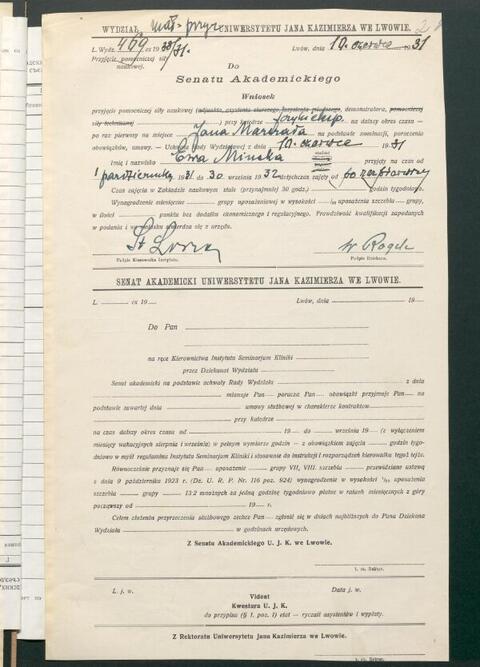 WYDZIAŁ mat.-przyr. UNIWERSYTETU JANA KAZIMIERZA WE LWOWIE. 2
L. Wydz. 469 ex 1930/31.
Lwów, dnia 10. czerwca 1931
Przyjęcie pomocniczej siły
naukowej.
Do
Senatu Akademickiego
Wniosek
przyjęcie pomocniczej siły naukowej (adjunkta, asystenta starszego, asystenta młodszego, demonstratora, pomocniczej
siły technicznej) przy katedrze na dalszy okres czasu —
po raz pierwszy na miejsce Jana Marchała na podstawie nominacji, poruczenia
obowiązków, umowy. — Uchwała Rady Wydziałowej z dnia 10. czerwca 1931
Imię i nazwisko Ewa Minska przyjęty na czas od
1 października 1931 do 30. września 1932. Ustępczych zajęty od
Czas zajęcia w Zakładzie naukowym stale (przynajmniej 30 godz.) godzin tygodniowo.
Wynagrodzenie miesięczne grupy uposażeniowej w wysokości uposażenia szczebla grupy,
w ilości punktów bez dodatku ekonomicznego i regulacyjnego. Prawdziwość kwalifikacji zapodanych
w podaniu i we wniosku stwierdza się z urzędu.
Podpis Kierownika Instytutu.
Podpis Dziekana.
SENAT AKADEMICKI UNIWERSYTETU JANA KAZIMIERZA WE LWOWIE.
L. ex 19
Lwów, dnia 19
Do Pan
na ręce Kierownictwa Instytutu Seminarjum Kliniki
przez Dziekanat Wydziału
Senat akademicki na podstawie uchwały Rady Wydziału z dnia
mianuje Pan porucza Pan obowiązki przyjmuje Pan na
podstawie zawartej dnia umowy służbowej w charakterze kontraktow.
przy katedrze
na czas dalszy okres czasu od 19 do września 19 (z wyłączeniem
miesięcy wakacyjnych sierpnia i września) w pełnym wymiarze godzin — z obowiązkiem zajęcia godzin tygod-
niowo w myśl regulaminu Instytutu Seminarjum Kliniki i stosownie do instrukcji i rozporządzeń kierownika tegoż tejże.
Równocześnie przyznaje się Pan uposażenie grupy VII, VIII szczebla przewidziane ustawą
z dnia 9 października 1923 r. (Dz. U. R. P. Nr. 116 poz. 924) wynagrodzenie w wysokości uposażenia
szczebla grupy 13·2 mnożnych za jedną godzinę tygodniowo płatne w ratach miesięcznych z góry
począwszy od 19 r.
Celem złożenia przyrzeczenia służbowego zechce Pan zgłosić się w dniach najbliższych do Pana Dziekana
Wydziału w godzinach urzędowych.
Z Senatu Akademickiego U. J. K. we Lwowie.
t. cz. Rektor.
L. j. w.
Data j. w.
Vident
Kwestura U. J. K.
do przypisu (§ 1. poz. 1) etat — ryczałt asystentów i wypłaty.
Z Rektoratu Uniwersytetu Jana Kazimierza we Lwowie.
t. cz. Rektor.